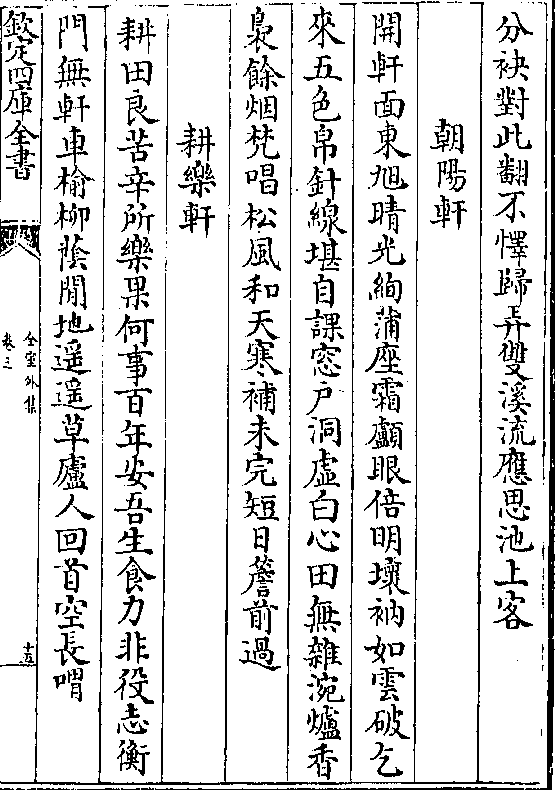 分袂對此翻不懌歸弄雙溪流應思池上客
朝陽軒
開軒面東旭晴光絢蒲座霜顱眼倍明壞衲如雲破乞
來五色帛針線堪自課窓户洞虚白心田無雜涴爐香
裊餘烟梵唱松風和天寒補未完短日簷前過
耕樂軒
耕田良苦辛所樂果何事百年安吾生食力非役志衡
門無軒車榆柳蔭閒地遥遥草廬人回首空長喟
欽定四庫全書
全室外集
卷三
十五